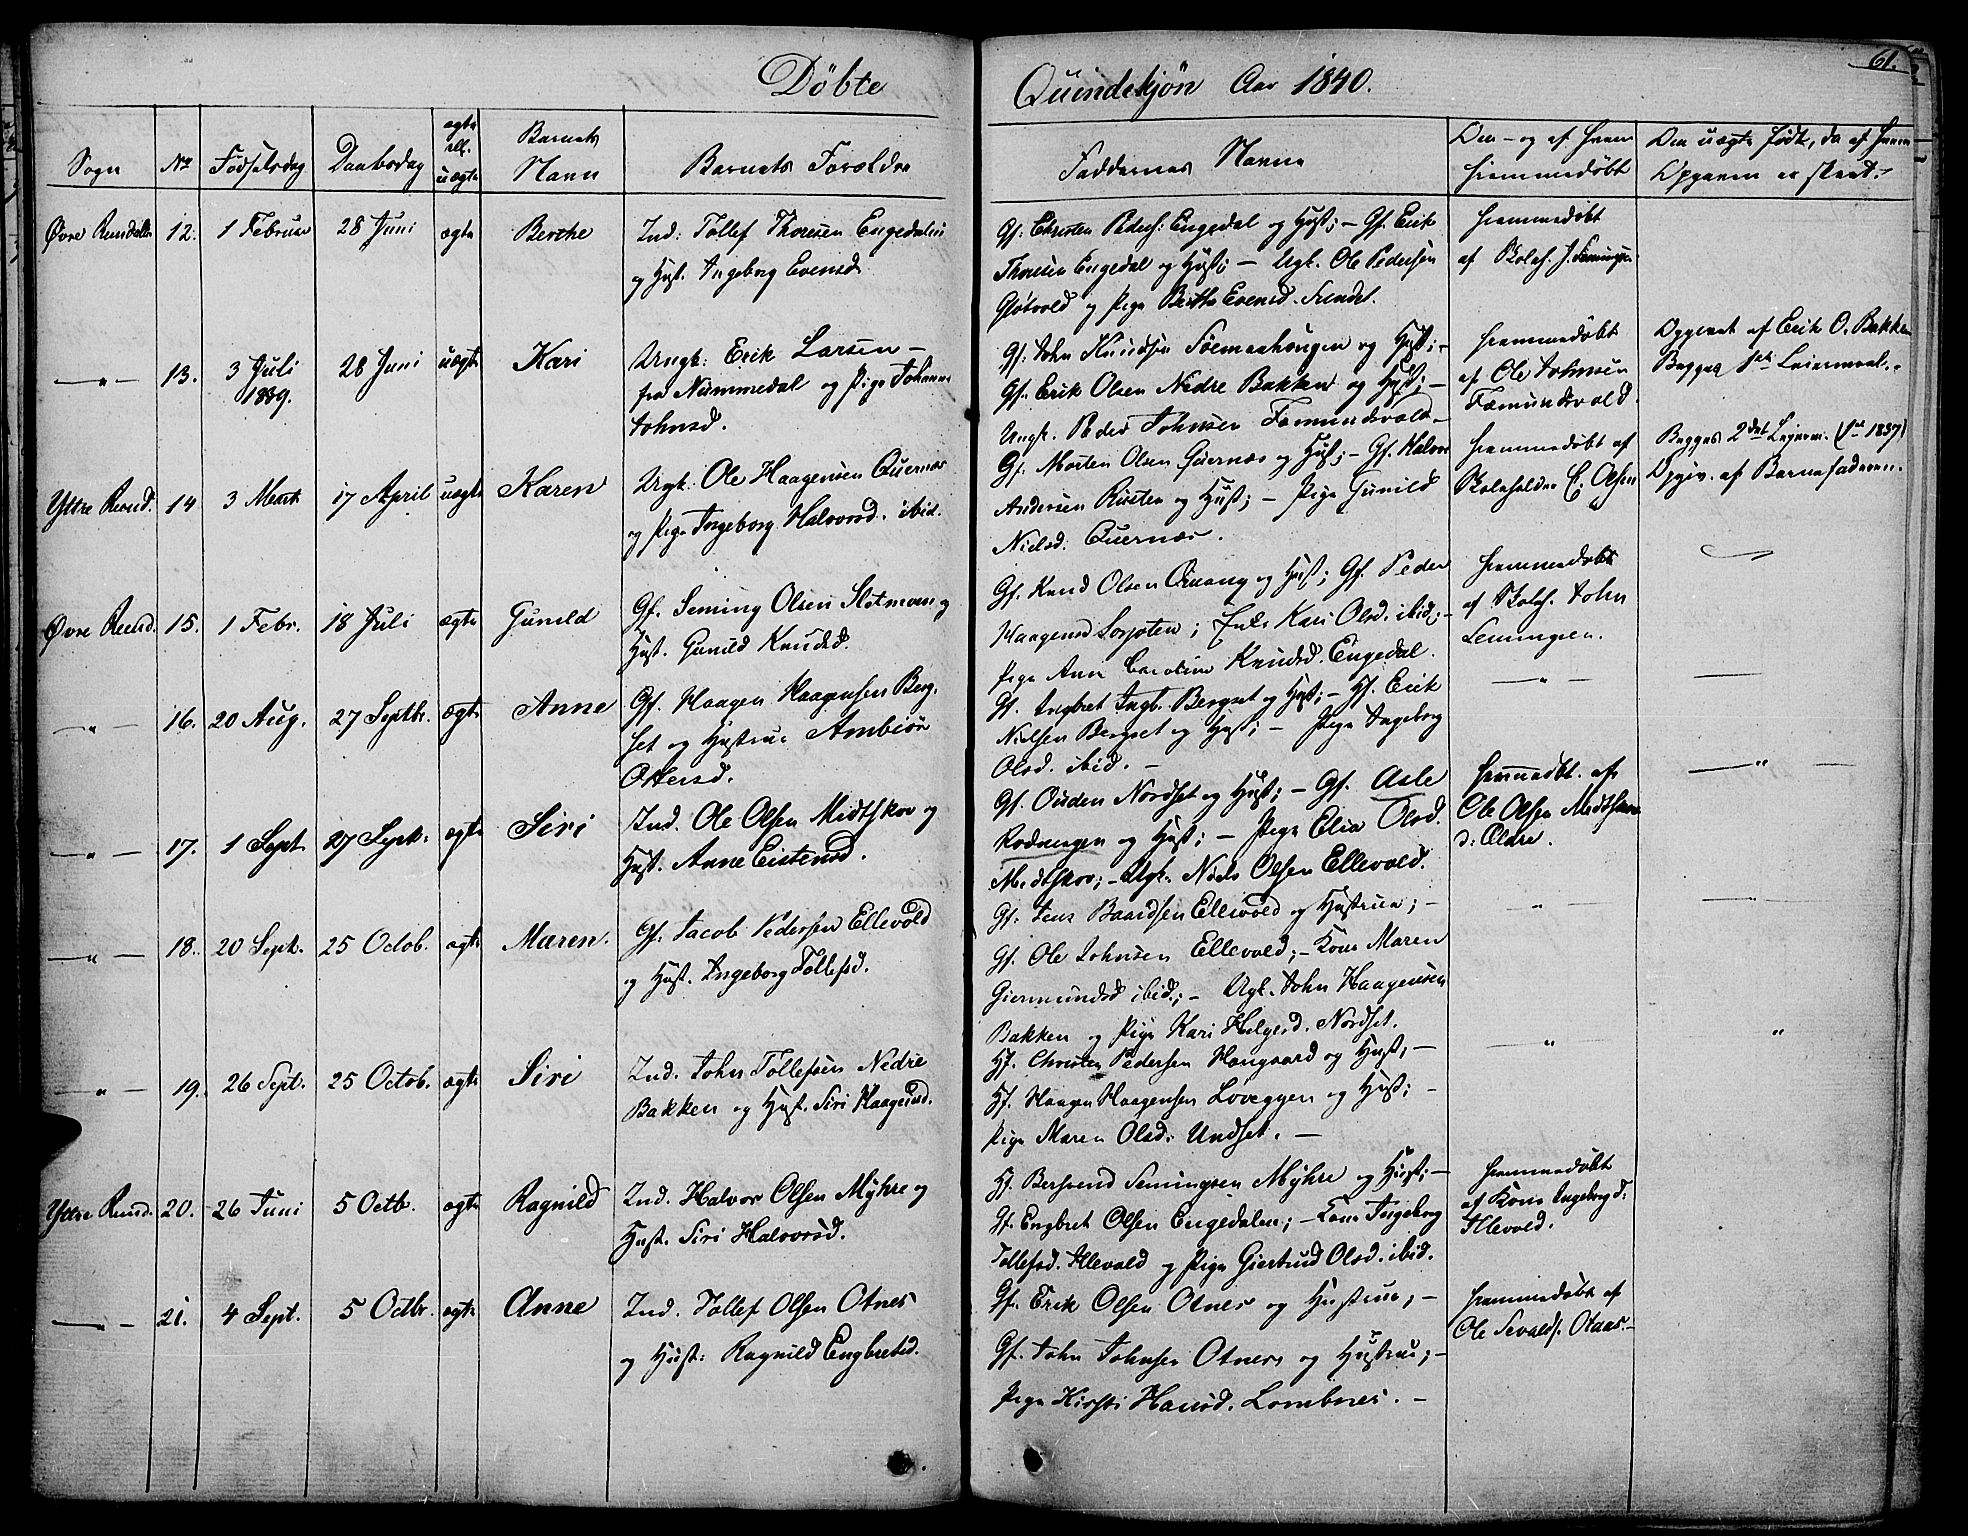 61.
Döbte Quindekjøn Aar 1840.
Sogn No Fødselsdag Daabsdag ægte ell. uægte Barnets Navn Barnets Forældre Faddernes Navne Om og af hvem hjemmedøbt Om uægte født, da af hvem Opgaven er skeet.
Øvre Rendalen 12. 1 Februar 28 Juni ægte Berthe Ind: Tollef Thoresen Engedalen
og Hust. Ingeborg Evensd.
Gf: Christen Peders: Engedal og Hust; – Gf. Erik
Thoresen Engedal og Hust; – Ugk. Ole Pedersen
Gløtvold og Pige Berthe Evensd.
hjemmedøbt
af Skoleh. J. Semingsen
–"– 13. 3 Juli 1839. 28 Juni uægte Kari Ungk: Erik Larsen –
fra Nummedal og Pige Johanne
Johnsd.
Gf: John Knudsen og Hust; –
Gf. Erik Olsen Nedre Bakken og Hust; –
Ungk. Peder Johnsen Fæmundsvold –
hjemmedøbt
af Ole Johnsen
Fæmundsvold.
Opgivet af Erik O. Bakken
Begges 1ste Leiermaal.
Yttre Rend. 14 3 Marts 17 April uægte Karen Ungk: Ole Haagensen Quernæs
og Pige Ingeborg Halvorsd. ibid.
Gf. Morten Olsen Quernæs og Hust; – Gf. Halvor
Andersen Rusten og Hust; – Pige Gunild
Nielsd. Quernæs.
hjemmedøbt af
Skoleholder E. Olsen
Begges 2det Leierm. (1ste 1837)
Opgiv. af Barnefaderen.
Øvre Rend. 15. 1 Febr. 18 Juli ægte Gunild Gf. Seming Olsen Sletmoen og
Hust. Gunild Knudsd.
Gf. Knud Olsen og Hust; Gf. Peder
Haagensd ; Enke Kari Olsd. ibid; –
Pige Ann Caroline Knudsd. Engedal.
hjemmedøbt
af Skoleh. John
Semingsen.
–"– 16. 20 Aug. 27 Septbr. ægte Anne Gf. Haagen Haagensen Berg-
set og Hustrue Ambiør
Ottersd.
Gf. Ingbret Ingb. Bergset og Hust; – Hf. Erik
Nielsen Bergset og Hust; – Pige Ingeborg
Olsd. ibid. –
–"–
–"– 17. 1 Sept. 27 Sept. ægte Siri Ind. Ole Olsen Midtskov og
Hust. Anne Eistensd.
Gf. Ouden Nordset og Hust; – Gf. Asle
Rødningen og Hust; – Pige Elia Olsd.
Midtskov; – Ugk. Niels Olsen Ellevold.
hjemmedøbt. af
Ole Olsen Midtskov
d: Eldre.
–"–
–"– 18. 20 Sept. 25 Octob. ægte Maren. Gf. Jacob Pedersen Ellevold
og Hust. Ingeborg Tollefsd.
Gf. Jens Baardsen Ellevold og Hustrue; –
Gf. Ole Johnsen Ellevold; – Kone Maren
Giermundsd ibid.; – Ugk. John Haagensen
Bakken og Pige Kari Helgesd. Nordset.
–"–
–"–
–"– 19. 26 Sept. 25 Octob. ægte Siri Ind. John Tollefsen Nedre
Bakken og Hust. Siri Haagensd.
Hf. Christen Pedersen Haugaard og Hust; –
Hf. Haagen Haagensen Løveggen og Hust; –
Pige Maren Olsd. Undset. –
–"–
"
Yttre Rend. 20. 26 Juni 5 Octb. ægte Ragnild Ind. Halvor Olsen Myhre og
Hust. Siri Halvorsd.
Hf. Bersvend Semingsen Myhre og Hust; –
Gf. Engbret Olsen Engedalen; – Kone Ingeborg
Tollefsd. Illevold og Pige Giertrud Olsd. ibid.
hjemmedøbt
af Kone Ingeborg T.
Illevold.
–"– 21. 4 Sept. 5 Octbr. ægte Anne Ind. Tollef Olsen Otnes
og Hust: Ragnild Engbretsd.
Gf. Erik Olsen Otnes og Hustrue; –
Gf. John Johnsen Otnes og Hustrue; –
Pige Kirsti Hansd. Lombnes. –
hjemmedøbt af
Ole Sevalds. Otnes. –